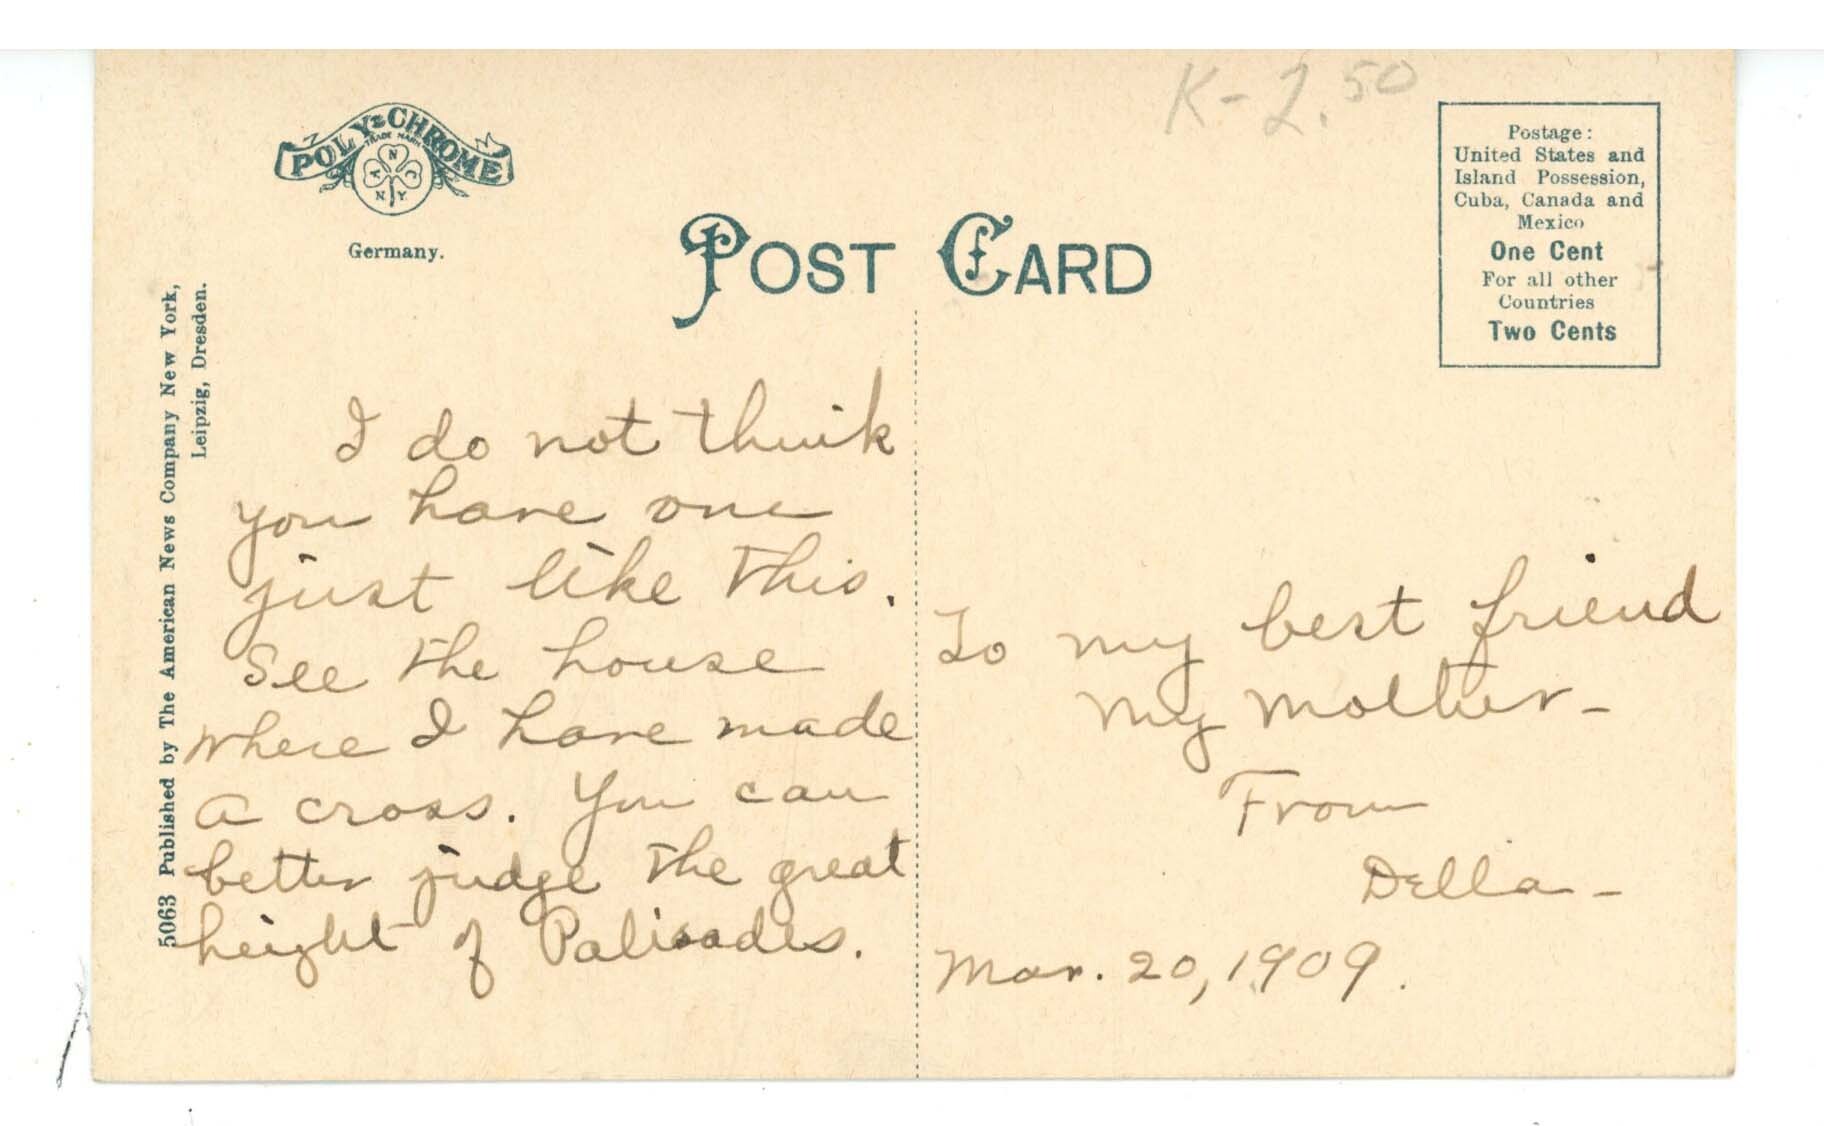 K-2.50
POLY-CHROME
TRADE MARK
A N C
N.Y.
Germany.
POST CARD
Postage:
United States and
Island Possession,
Cuba, Canada and
Mexico
One Cent
For all other
Countries
Two Cents
5063 Published by The American News Company New York,
Leipzig, Dresden.
I do not think
you have one
just like this.
See the house
where I have made
a cross. You can
better judge the great
height of Palisades.
To my best friend
My Mother-
From
Della-
Mar. 20, 1909.